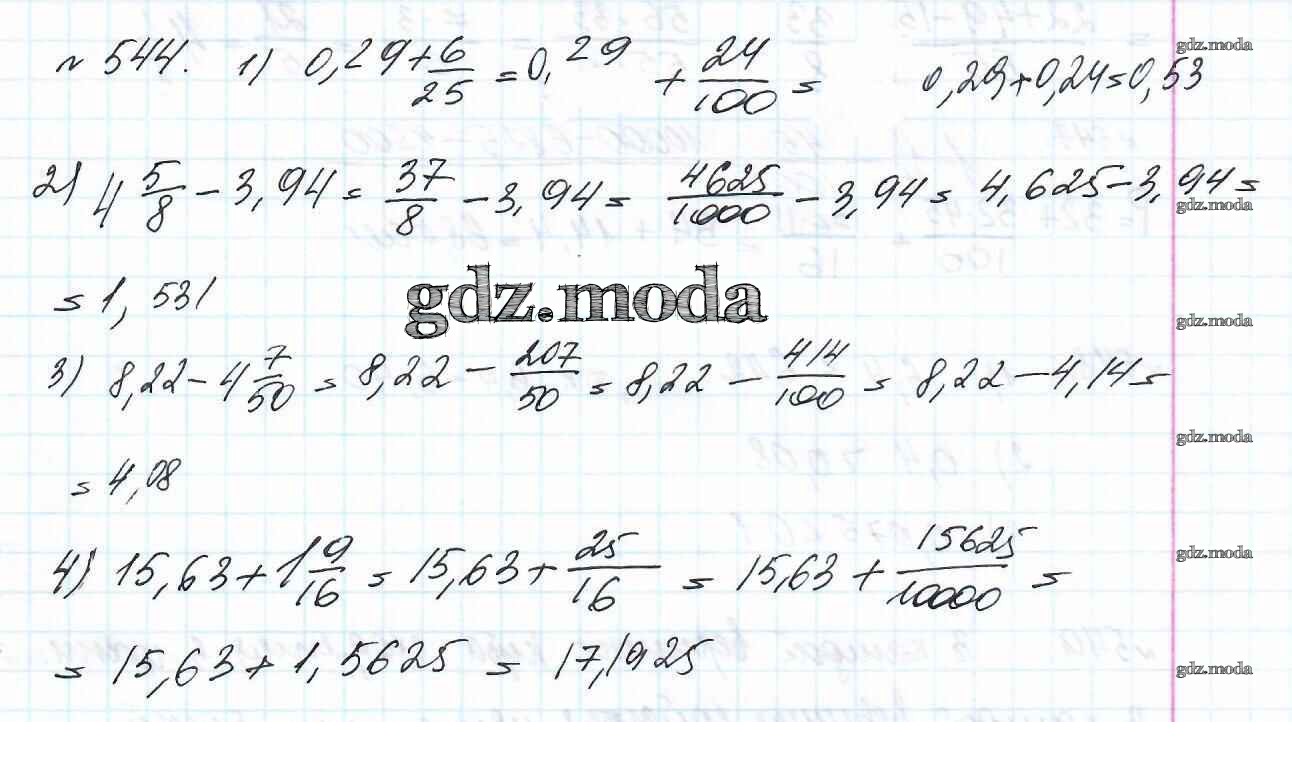 № 544. 1) 0,29 + 6/25 = 0,29 + 24/100 = 0,29 + 0,24 = 0,53
gdz.moda
2) 4 5/8 - 3,94 = 37/8 - 3,94 = 4625/1000 - 3,94 = 4,625 - 3,94 =
gdz.moda
= 1,531
gdz.moda
gdz.moda
3) 8,22 - 4 7/50 = 8,22 - 207/50 = 8,22 - 414/100 = 8,22 - 4,14 =
gdz.moda
= 4,08
4) 15,63 + 1 9/16 = 15,63 + 25/16 = 15,63 + 15625/10000 =
gdz.moda
= 15,63 + 1,5625 = 17,1925
gdz.moda